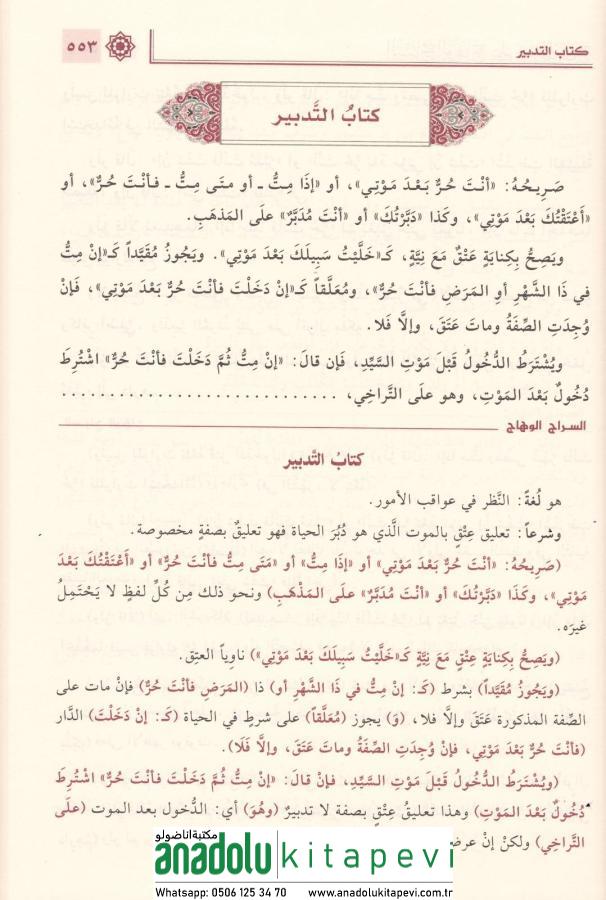 كتاب التدبير
٥٥٣
كتابُ التَّدبير
صَرِيحُهُ: «أنْتَ حُرٌّ بَعْدَ مَوْتِي»، أو «إذَا مِتُّ ـ أو متَى مِتُّ ـ فأنْتَ حُرٌّ»، أو
«أَعْتَقْتُكَ بَعْدَ مَوْتِي»، وكَذا «دَبَّرْتُكَ» أو «أنْتَ مُدَبَّرٌ» علَى المَذهَبِ.
ويَصِحُّ بِكِنايَةِ عَتْقٍ مَعَ نِيَّةٍ، كَـ«خَلَّيْتُ سَبِيلَكَ بَعْدَ مَوْتِي». ويَجُوزُ مُقَيَّداً كَـ«إنْ مِتُّ
في ذَا الشَّهْرِ أوِ المَرَضِ فأنْتَ حُرٌّ»، ومُعَلَّقاً كَـ«إنْ دَخَلْتَ فأنْتَ حُرٌّ بَعْدَ مَوْتِي»، فَإنْ
وُجِدَتِ الصِّفَةُ وماتَ عَتَقَ، وإلَّا فَلا.
ويُشْتَرَطُ الدُّخُولُ قَبْلَ مَوْتِ السَّيِّدِ، فَإن قالَ: «إنْ مِتُّ ثُمَّ دَخَلْتَ فأنْتَ حُرٌّ» اشْتُرِطَ
دُخُولٌ بَعْدَ المَوْتِ، وهو علَى التَّراخِي، . . . . . . . . . . . . . . . . . . . . . . . . . . . .
السراج الوهاج
كتابُ التَّدبير
هو لُغةً: النَّظر في عواقب الأمور.
وشرعاً: تعليق عِتْقٍ بالموت الَّذي هو دُبُرَ الحياة فهو تعليقٌ بصفةٍ مخصوصة.
(صَرِيحُهُ: «أنْتَ حُرٌّ بَعْدَ مَوْتِي» أو «إذَا مِتُّ» أو «مَتَى مِتُّ فأنْتَ حُرٌّ» أو «أَعْتَقْتُكَ بَعْدَ
مَوْتِي»، وكَذَا «دَبَّرْتُكَ» أو «أنْتَ مُدَبَّرٌ» علَى المَذْهَبِ) ونحو ذلك مِن كُلِّ لفظٍ لا يَحْتَمِلُ
غيرَه.
(ويَصِحُّ بِكِنايَةِ عِتْقٍ مَعَ نِيَّةٍ كَـ«خَلَّيْتُ سَبِيلَكَ بَعْدَ مَوْتِي») ناوِياً العِتق.
(ويَجُوزُ مُقَيَّداً) بشرط (كَـ: إنْ مِتُّ في ذَا الشَّهْرِ أو) ذا (المَرَضِ فأنْتَ حُرٌّ) فإنْ مات على
الصِّفة المذكورة عَتَقَ وإلَّا فلا، (وَ) يجوز (مُعَلَّقاً) على شرطٍ في الحياة (كَـ: إنْ دَخَلْتَ) الدَّار
(فأنْتَ حُرٌّ بَعْدَ مَوْتِي، فإنْ وُجِدَتِ الصِّفَةُ وماتَ عَتَقَ، وإلَّا فَلَا).
(ويُشْتَرَطُ الدُّخُولُ قَبْلَ مَوْتِ السَّيِّدِ، فَإنْ قالَ: «إنْ مِتُّ ثُمَّ دَخَلْتَ فأنْتَ حُرٌّ» اشْتُرِطَ
دُخُولٌ بَعْدَ المَوْتِ) وهذا تعليقُ عِتْقٍ بصفة لا تدبيرٌ (وهُوَ) أي: الدُّخول بعد الموت (علَى
التَّراخِي) ولكنْ إنْ عرض
مكتبة اناضولو
anadolu kitapevi
Whatsapp: 0506 125 34 70 www.anadolukitapevi.com.tr